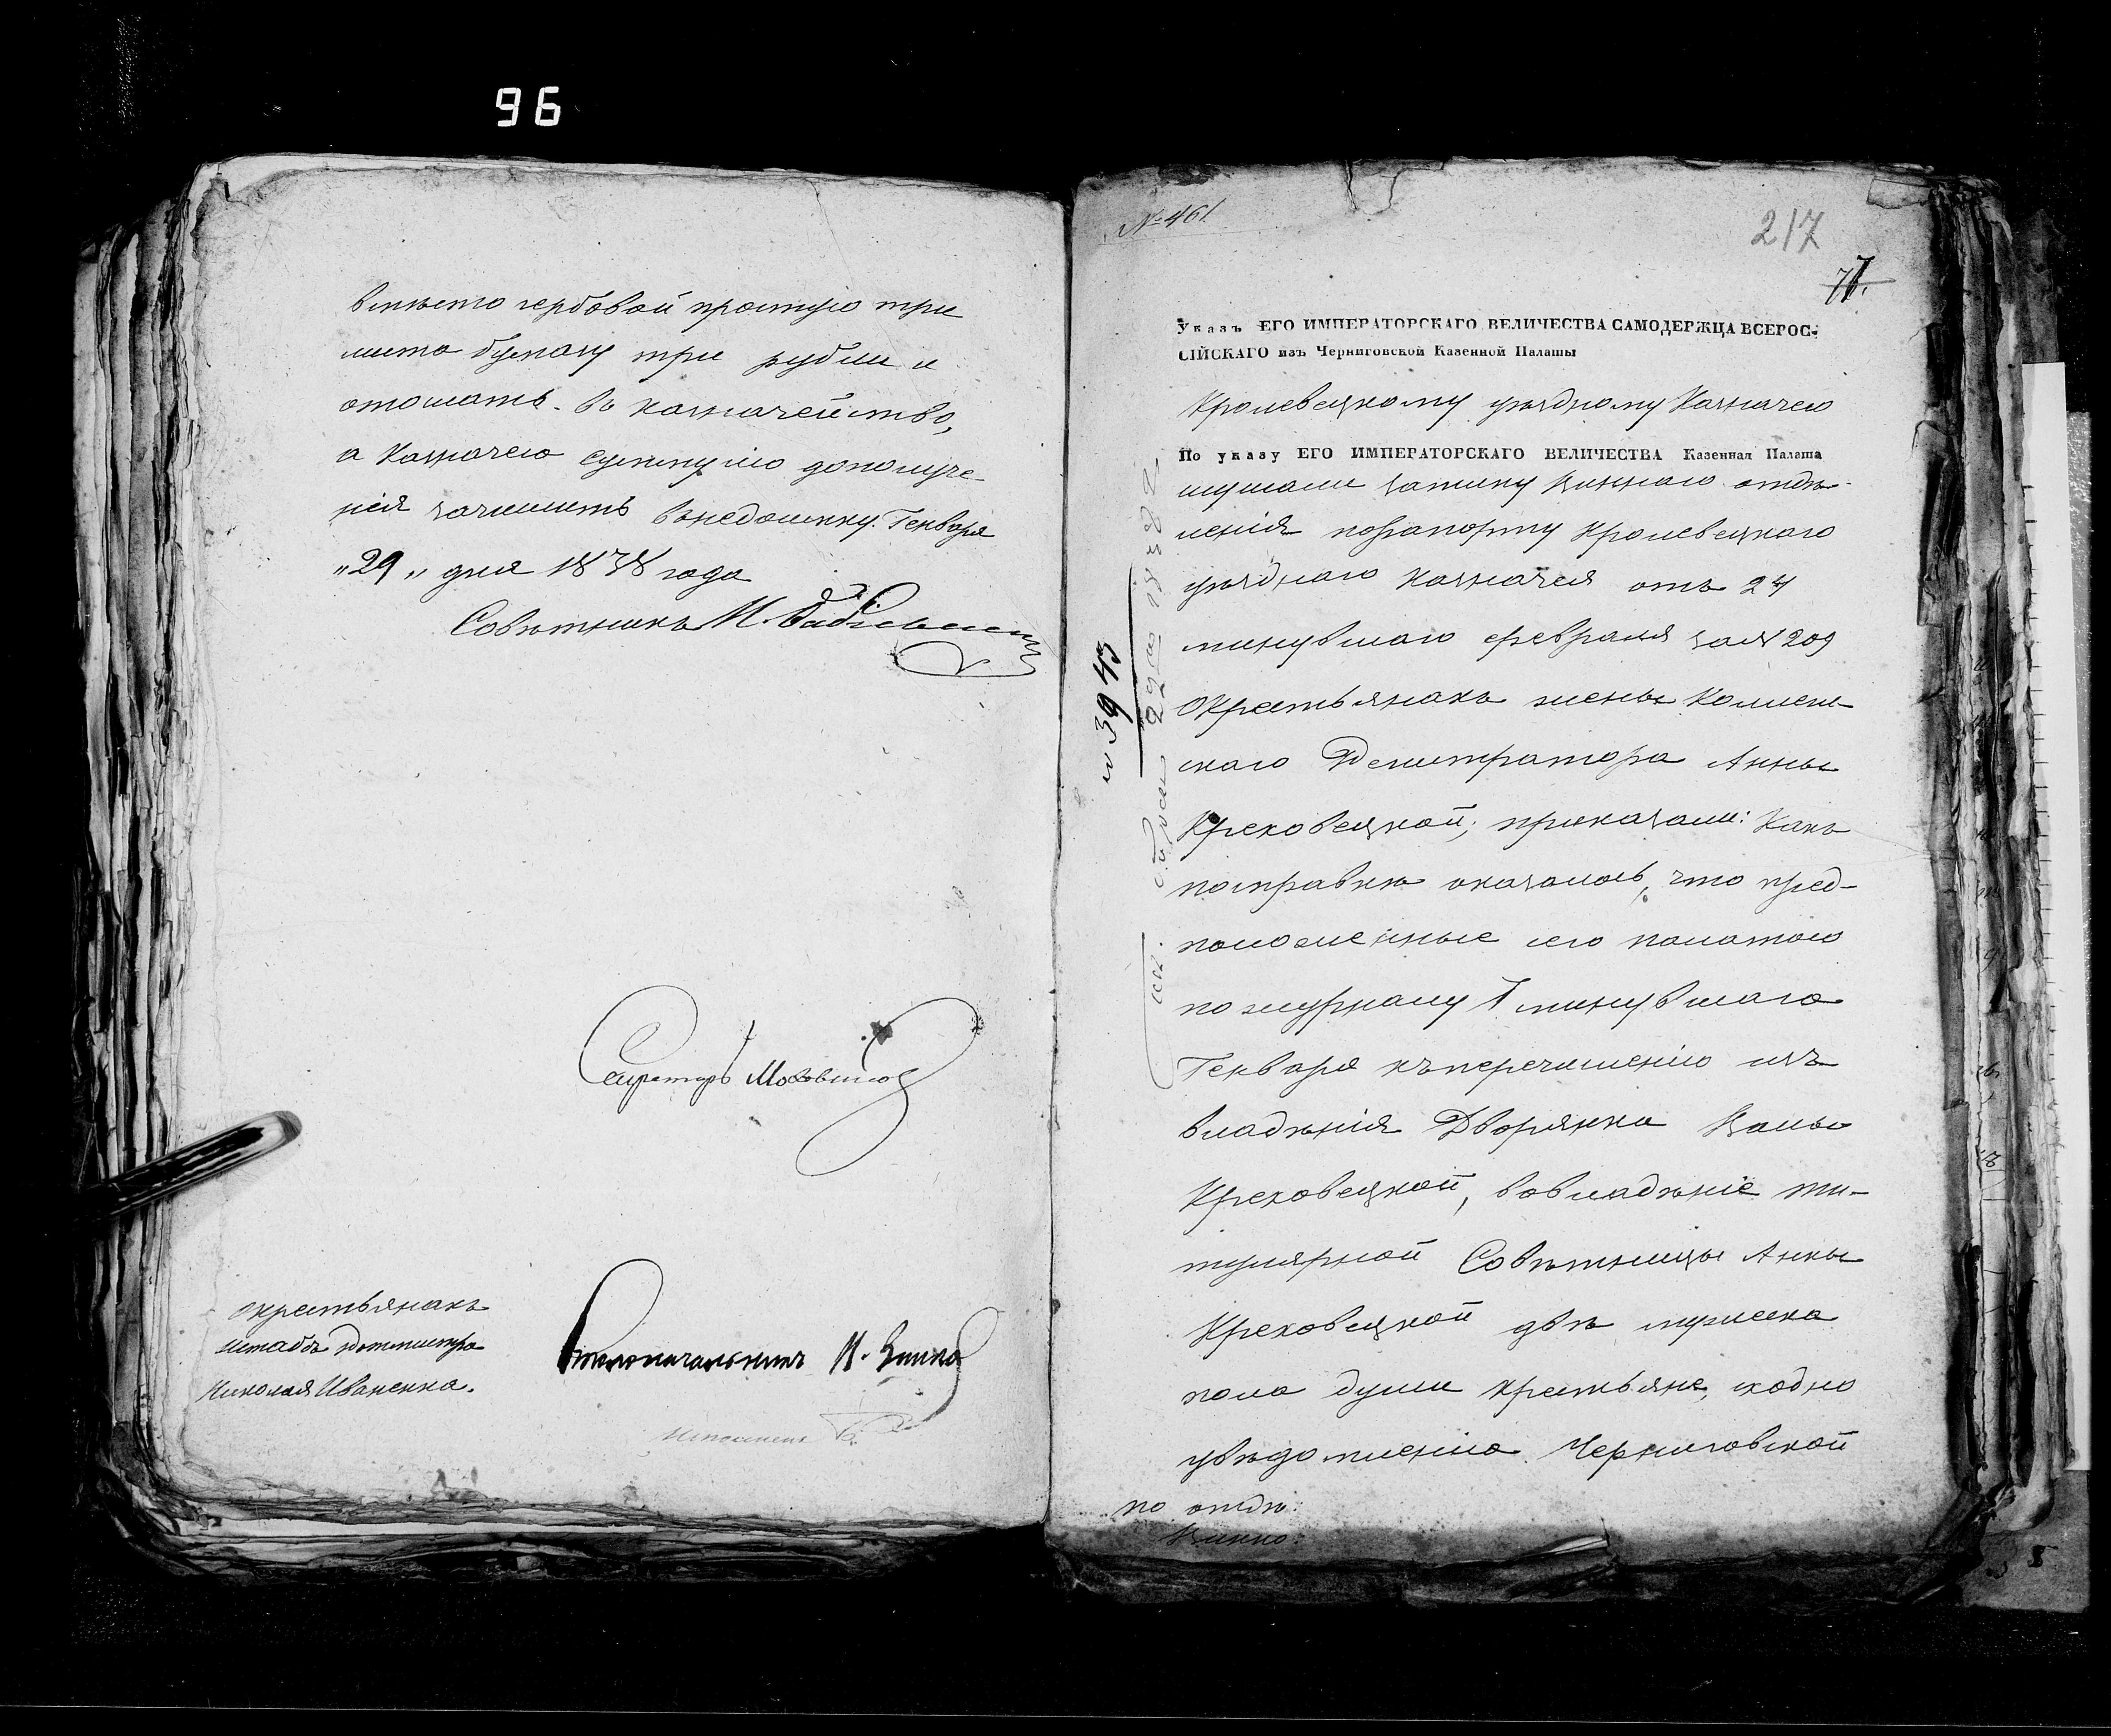 96
вместо гербовой простую три
листа бумагу три рубли и
отослать въ казначейство,
а Казначею сумму сію дополуче-
нія зачислить внедоимку. Генваря
„29„ дня 1838 года
Совѣтникъ М.
Секретарь
окрестьянахъ
штабъ ротмистра
Николая Иваненка.
Столоначальникъ
№ 461
217
77.
Указъ ЕГО ИМПЕРАТОРСКАГО ВЕЛИЧЕСТВА САМОДЕРЖЦА ВСЕРОС-
СІЙСКАГО изъ Черниговской Казенной Палаты
Кролевецкому уѣздному Казначею
По указу ЕГО ИМПЕРАТОРСКАГО ВЕЛИЧЕСТВА Казенная Палата
слушали записку Виннаго отдѣ-
ленія порапорту Кролевецкаго
уѣзднаго казначея отъ 24
минувшаго февраля за № 209
Окрестьянахъ жены Коллеж-
скаго Регистратора Анны
Креховецкой; приказали: Какъ
посправкѣ оказалось, что пред-
положенные сею палатою
пожурналу 7 минувшаго
Генваря къперечисленію изъ
владѣнія Дворянки
Креховецкой, вовладѣніе ти-
тулярной Совѣтницы Анны
Креховецкой двѣ мужеска
пола души крестьяне, сходно
увѣдомленію Черниговской
по отдѣ:
Винно:
№ 3943